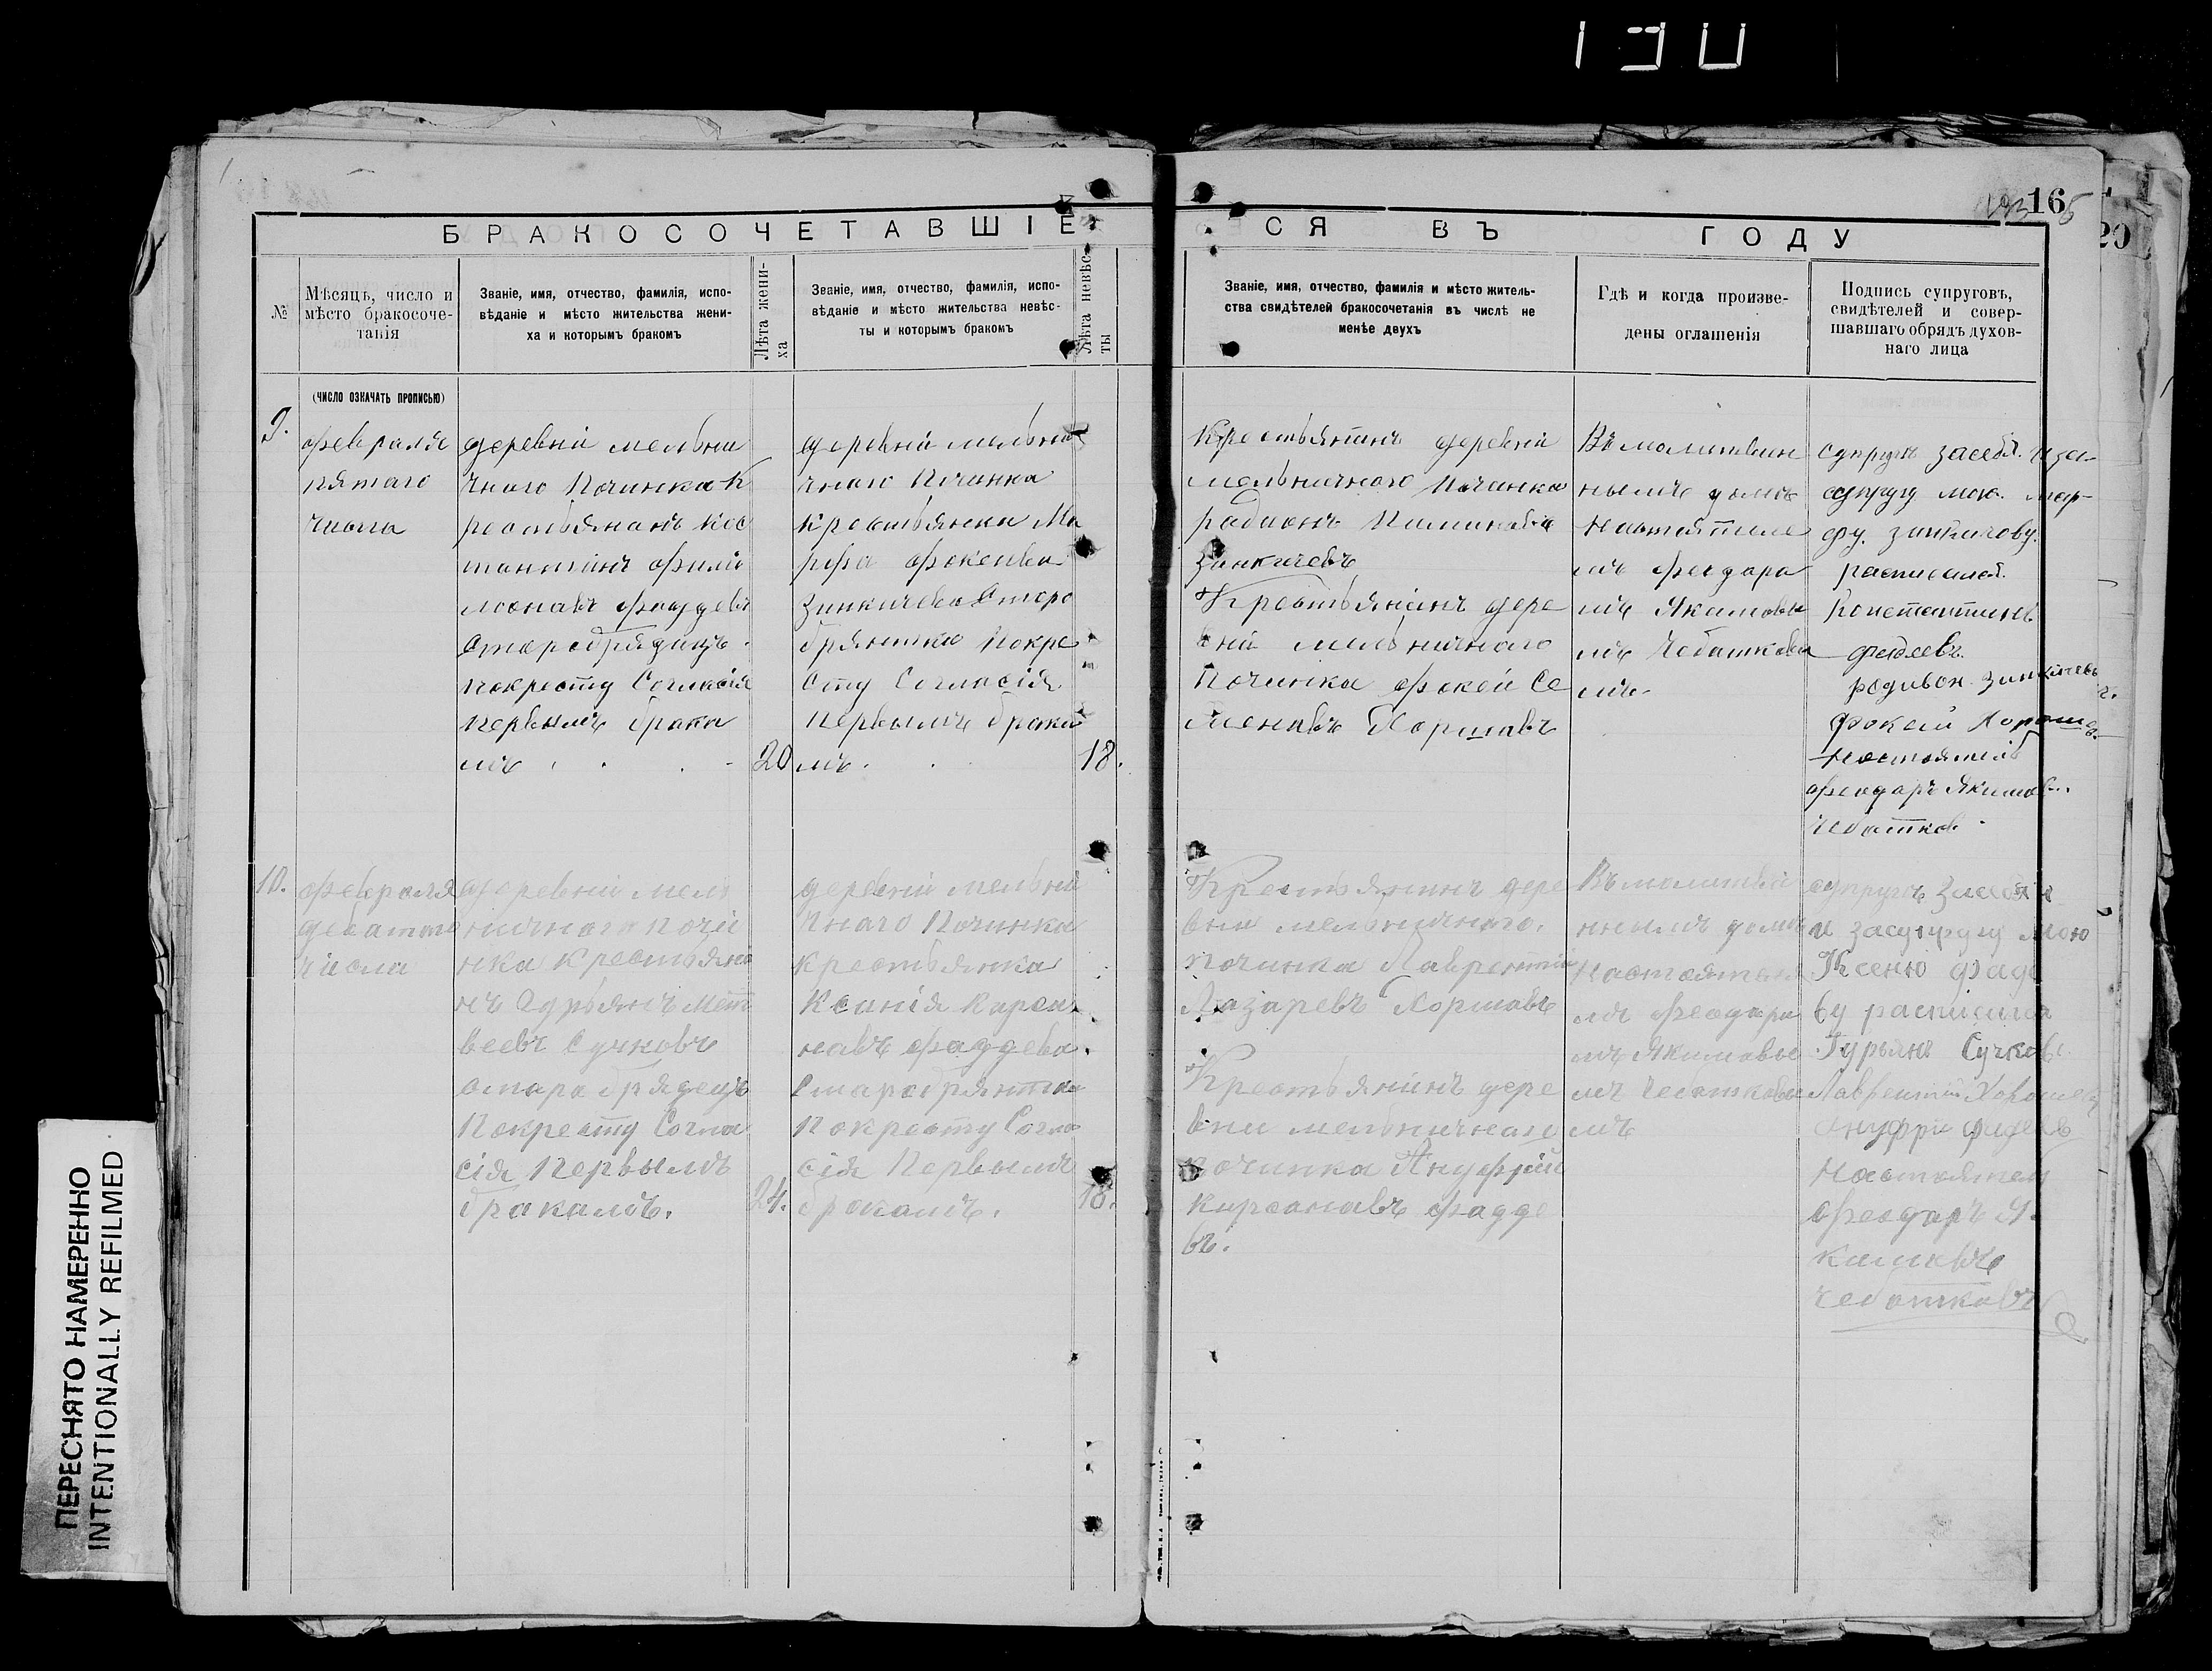 190
16
20
БРАКОСОЧЕТАВШІЕСЯ ВЪ ГОДУ
№
Мѣсяцъ, число и
мѣсто бракосоче-
танія
Званіе, имя, отчество, фамилія, испо-
вѣданіе и мѣсто жительства жени-
ха и которымъ бракомъ
Лѣта жени-
ха
Званіе, имя, отчество, фамилія, испо-
вѣданіе и мѣсто жительства невѣс-
ты и которымъ бракомъ
Лѣта невѣс-
ты
Званіе, имя, отчество, фамилія и мѣсто житель-
ства свидѣтелей бракосочетанія въ числѣ не
менѣе двухъ
Гдѣ и когда произве-
дены оглашенія
Подпись супруговъ,
свидѣтелей и совер-
шавшаго обрядъ духов-
наго лица
(ЧИСЛО ОЗНАЧАТЬ ПРОПИСЬЮ)
9.
февраля
пятаго
числа
деревни мельни
чного Починка К
рестьянинъ Кос
тантинъ Фили
моновъ Фаддевъ
Старобрядицъ
покресту Согласія
первымъ брака
мъ
20
деревни мельни
чного Починка
крестьянка Ма
рфа Фокеива
Зинкичева Старо
брянтка покре
сту Согласія
первымъ брака
мъ.
18.
Крестьянинъ деревни
мельничного Починка
радионъ
Зинкичевъ
Крестьянинъ дере
вни мельничного
Починка Фокей Се
меновъ Хоршавъ
Въ молитвин
нымъ домѣ
Настоятеле
мъ Феодара
мъ Якимовы
мъ Чебатковы
мъ.
супругъ засебя и за
супругу мою мар-
фу Зинкичову
расписался
Константинъ
Фадеевъ
родивон Зинкичевъ
Фокей Хорошев
Настоятель
Феодаръ Якимов
Чебатков
10.
февраля
девятого
числа
деревни мель
ничного почи
нка крестьяни
нъ Адрьянъ Мат
веевъ Сучковъ
старобрядецъ
Покресту Согла
сія Первымъ
бракамъ.
24.
деревни мельни
чного Починка
крестьянка
Ксинія Кирса
навъ Фаддева.
Старобрянтка
Покресту Согла
сія Первымъ
бракамъ.
18.
Крестьянинъ дере
вни мельничного.
починка Лаврентий
Лазаревъ Хоршавъ
Крестьянинъ дере
вни мельничнаго
починка Ануфрий
Кирсанавъ Фадде
въ.
Въ молитви
ннымъ домѣ
Настоятеле
мъ Феодара
мъ Якимовы
мъ Чебатковы
мъ
супругъ засебя
и засупругу мою
Ксеню Фаде
ву расписался
Гурьянъ Сучковъ
Лаврентий Хорошев
Онуфри Фадеев
Настоятель
Феодаръ Я.
кимовъ
Чебатковъ
ПЕРЕСНЯТО НАМЕРЕННО
INTENTIONALLY REFILMED